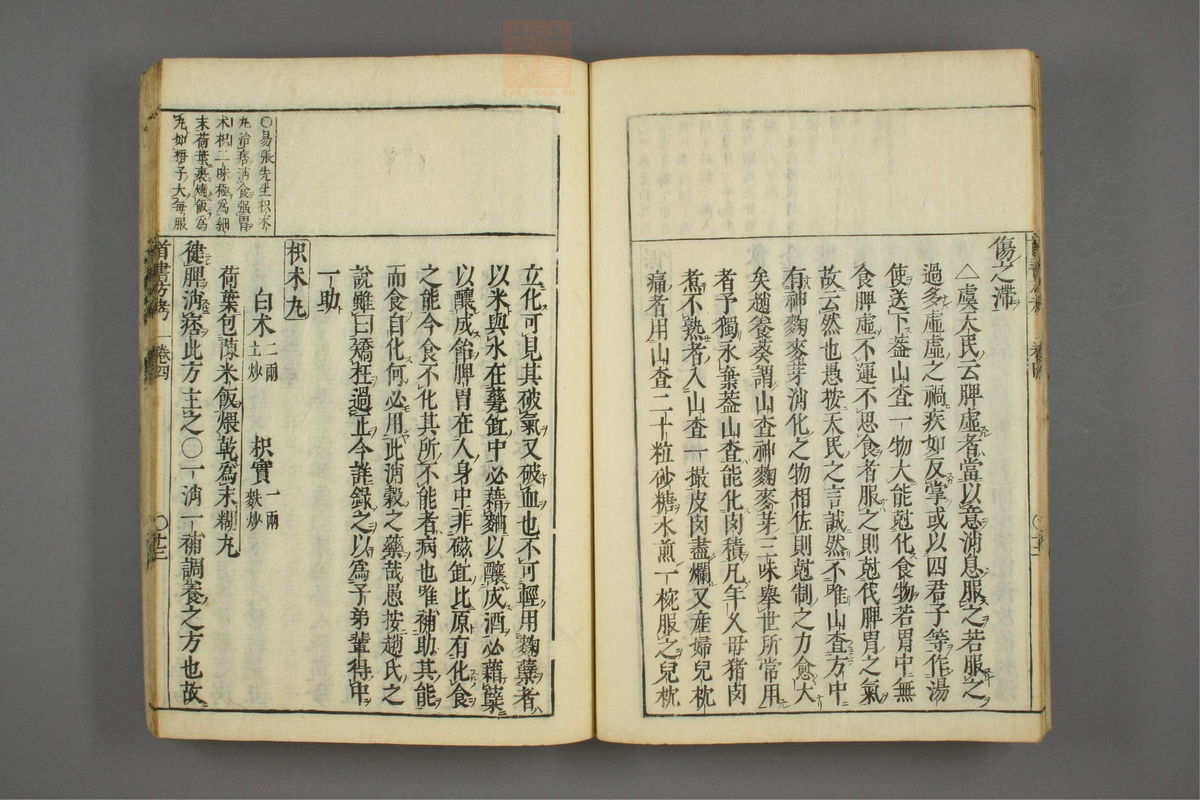 傷之滯
△虞天民云脾虛者當以意消息服之若服之
過多虛虛之禍疾如反掌或以四君子等作湯
使送下蓋山查一物大能尅化食物若胃中無
食脾虛不運不思食者服之則尅伐脾胃之氣
故云然也愚按天民之言誠然不唯山查方中
有神麴麥芽消化之物相佐則尅制之力愈大
矣趙養葵謂山查神麴麥芽三味舉世所常用
者予獨永棄蓋山查能化肉積凡年久母猪肉
煮不熟者入山查一撮皮肉盡爛又産婦兒枕
痛者用山查二十粒砂糖水煎一椀服之兒枕
立化可見其破氣又破血也不可輕用麴糵者
以米與水在甕缸中必藉麯以釀成酒必藉糵
以釀成飴脾胃在人身中非磁缸比原有化食
之能今食不化其所不能者病也唯補助其能
而食自化何必用此消穀之藥哉愚按趙氏之
說雖曰矯枉過正今誰錄之以爲子弟輩得中
一助
枳术丸
白术二兩土炒 枳實一兩麩炒
荷葉包陳米飯煨乾爲末糊丸
健脾消痞此方主之○一消一補調養之方也故
○易張先生枳术
丸治痞消食强胃
术枳二味極爲細
末荷葉裹燒飯爲
丸如梧子大每服
首書方考 卷四 ○廿二